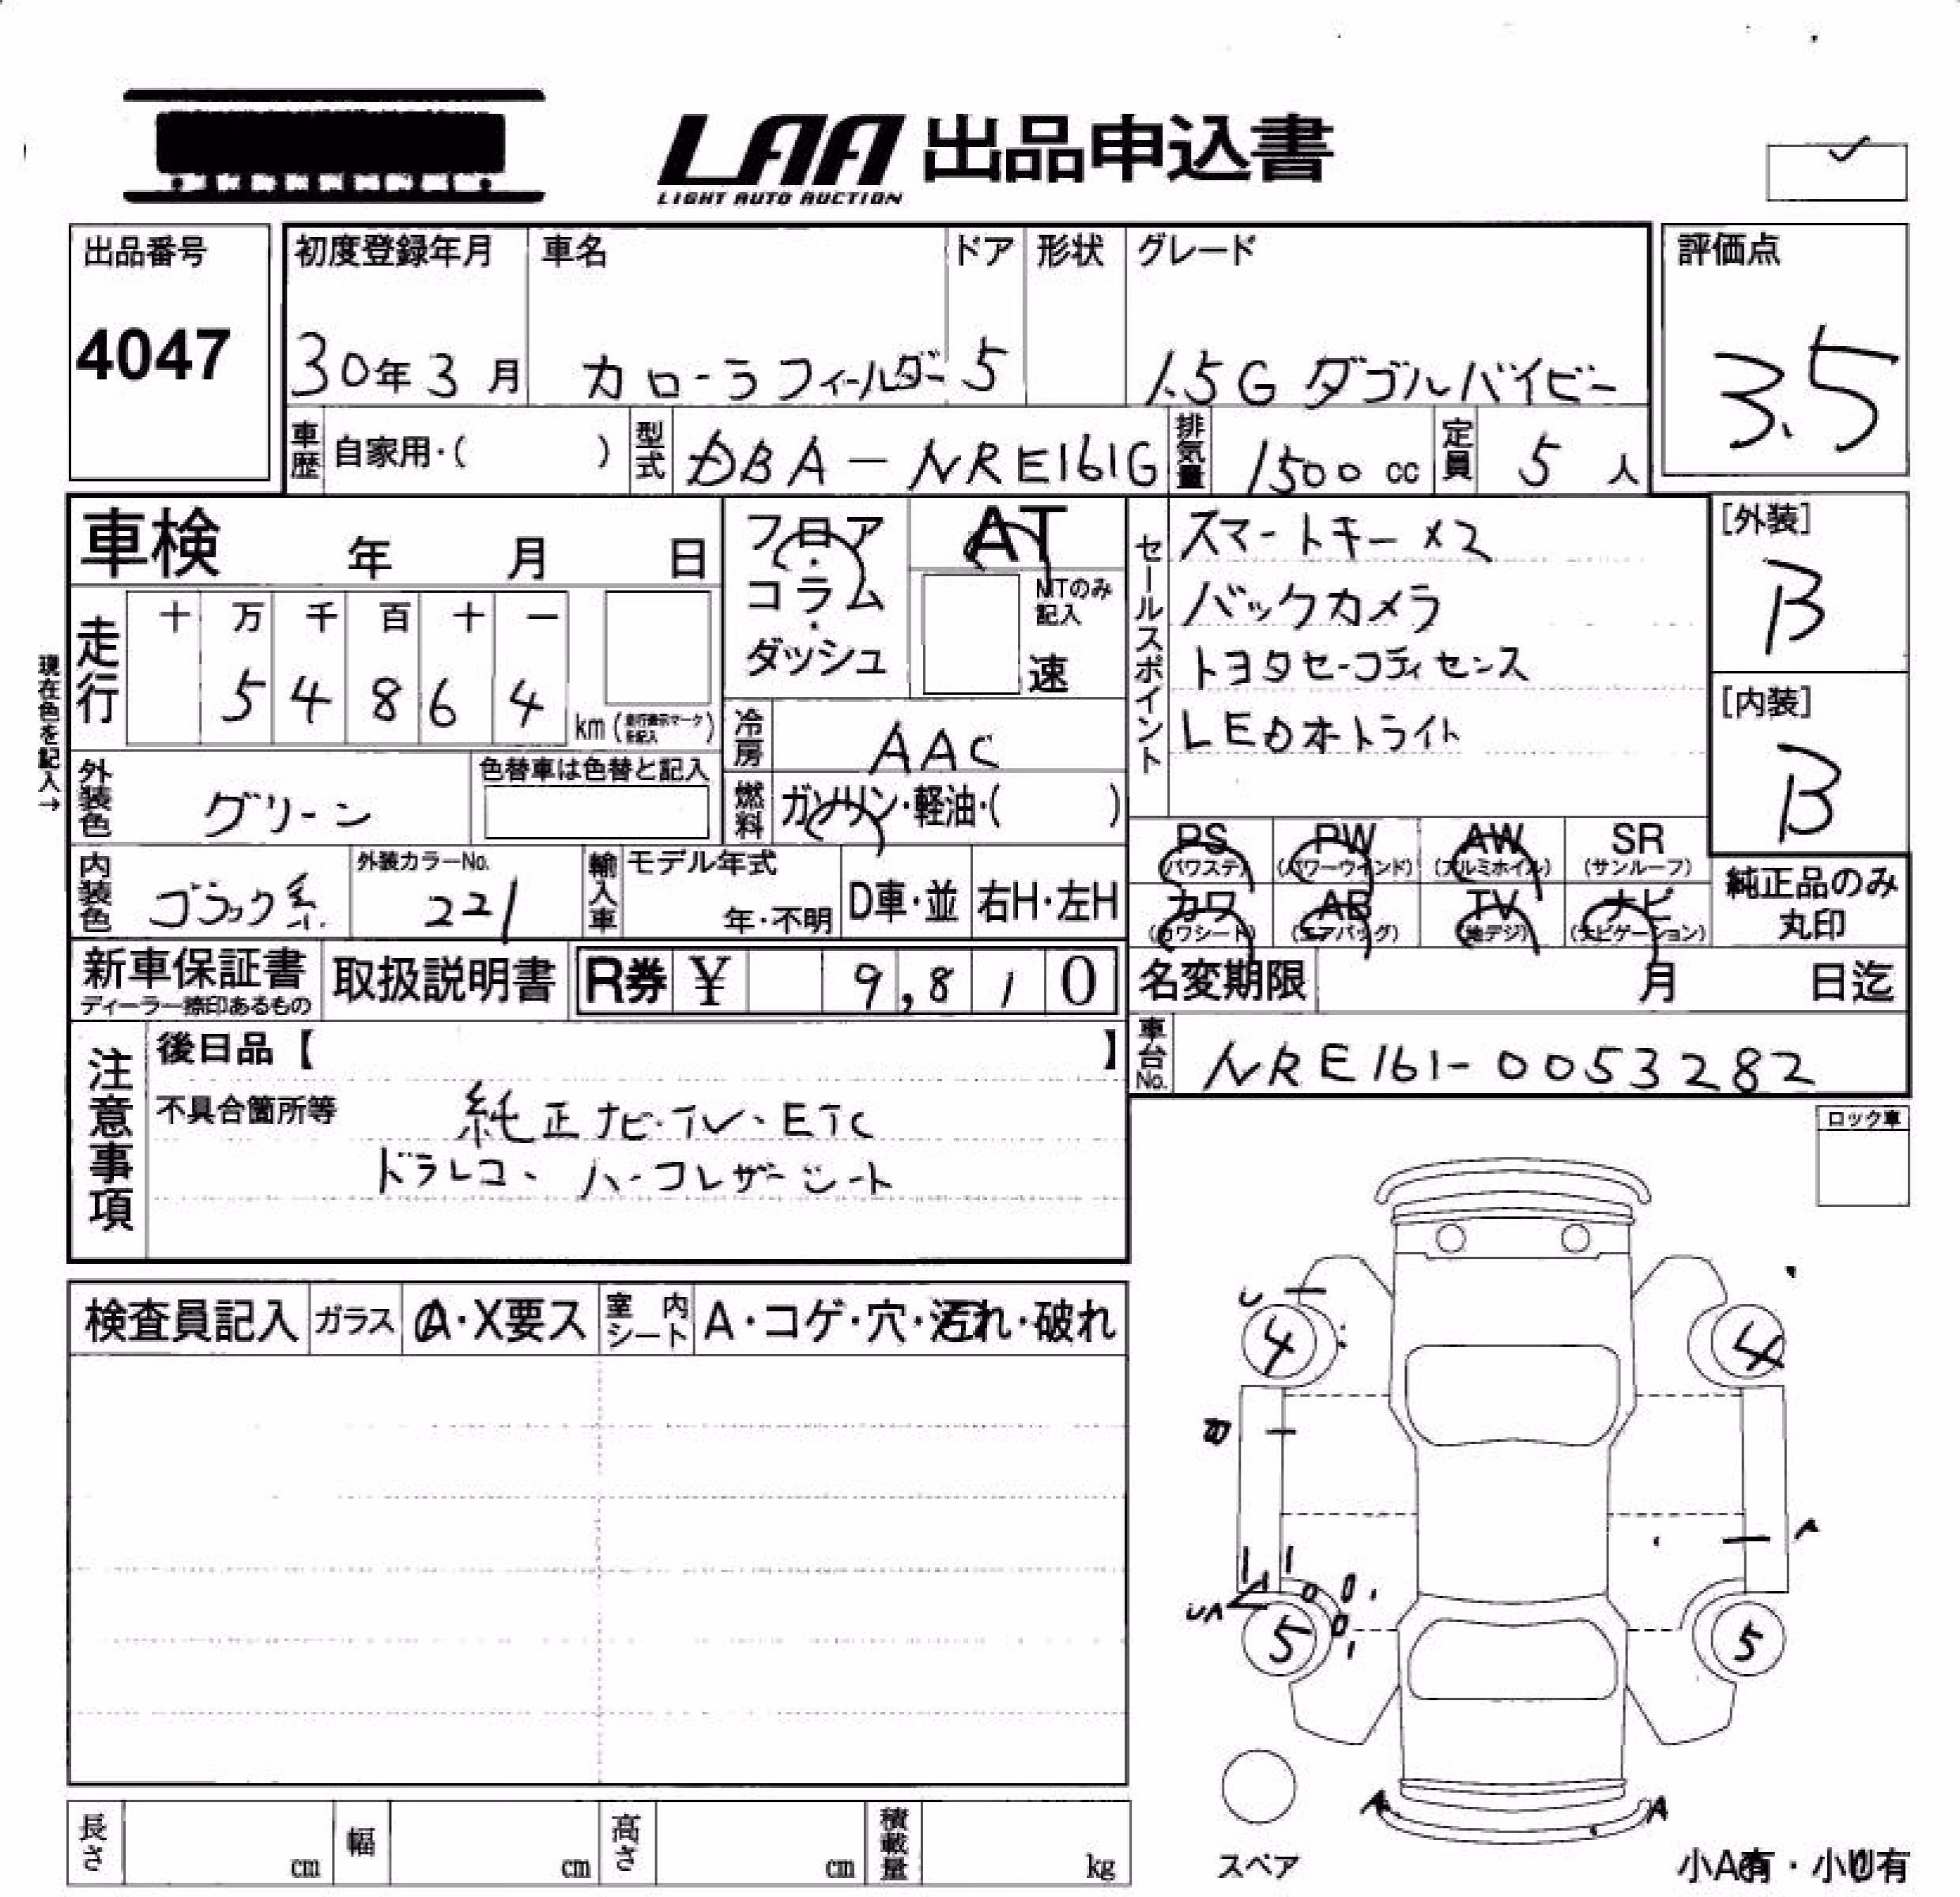 LAA 出品申込書
LIGHT AUTO AUCTION
出品番号
4047
初度登録年月
30年3月
車名
カローラフィールダー
ドア
5
形状
グレード
1.5G ダブルバイビー
評価点
3.5
車歴 自家用・( )
型式 DBA-NRE161G
排気量 1500 cc
定員 5 人
車検 年 月 日
フロア・コラム・ダッシュ
AT
MTのみ記入
速
セールスポイント
スマートキー×2
バックカメラ
トヨタセーフティセンス
LEDオートライト
[外装]
B
[内装]
B
現在色を記入→
走行
十 万 千 百 十 一
5 4 8 6 4
km (走行表示マークを記入)
冷房 AAC
燃料 ガソリン・軽油・( )
外装色 グリーン
色替車は色替と記入
内装色 ブラック系
外装カラーNo.
221
輸入車 モデル年式
年・不明
D車・並 右H・左H
PS (パワステ) PW (パワーウインド) AW (アルミホイル) SR (サンルーフ)
カワ (カワシート) AB (エアバッグ) TV (地デジ) ナビ (ナビゲーション)
純正品のみ丸印
新車保証書
ディーラー捺印あるもの
取扱説明書
R券 ¥ 9,810
名変期限 月 日迄
車台No. NRE161-0053282
注意事項
後日品【 】
不具合箇所等
純正ナビ・TV・ETC
ドラレコ、ハーフレザーシート
ロック車
検査員記入 ガラス A・X要ス 室内シート A・コゲ・穴・汚れ・破れ
U
4 4
B
A
UA
5 5
A A
スペア
小A有・小U有
長さ cm 幅 cm 高さ cm 積載量 kg